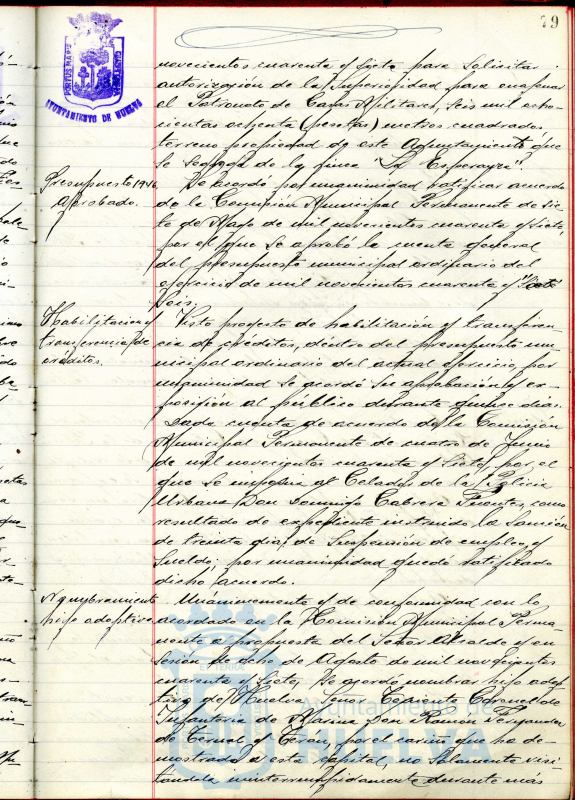 79
AYUNTAMIENTO DE HUELVA
novecientos cuarenta y siete para solicitar
autorización de la Superioridad para enajenar
al Patronato de Casas Militares, seis mil ocho-
cientas ochenta (pesetas) metros cuadrados,
terreno propiedad de este Ayuntamiento que
se segrega de la finca "La Esperanza".
Presupuesto 1946
aprobado.
Se acordó por unanimidad ratificar acuerdo
de la Comisión Municipal Permanente de sie-
te de Mayo de mil novecientos cuarenta y siete,
por el que se aprobó la cuenta general
del presupuesto municipal ordinario del
ejercicio de mil novecientos cuarenta y "siete"
seis.
Habilitacion y
transferencia de
créditos.
Visto proyecto de habilitación y transferen-
cia de creditos, dentro del presupuesto mu-
nicipal ordinario del actual ejercicio, por
unanimidad se acordó su aprobación y ex-
posición al público durante quince días.
Dada cuenta de acuerdo de la Comisión
Municipal Permanente de cuatro de Junio
de mil novecientos cuarenta y siete, por el
que se imponia al Celador de la Policia
Urbana Don Domingo Cabrera Fuentes, como
resultado de expediente instruido, la sanción
de treinta dias de suspensión de empleo y
sueldo, por unanimidad quedó ratificado
dicho acuerdo.
Nombramiento
hijo adoptivo
Unánimemente y de conformidad con lo
acordado en la Comisión Municipal Perma-
nente a propuesta del Señor Alcalde y en
sesión de ocho de Agosto de mil novecientos
cuarenta y siete, se acordó nombrar hijo adop-
tivo de Huelva, al Señor Teniente Coronel de
Infantería de Marina Don Ramón Fernandez
de Teran, por el cariño que ha de-
mostrado a esta capital, no solamente visi-
tandola ininterrumpidamente durante más
Ayuntamiento de
HUELVA